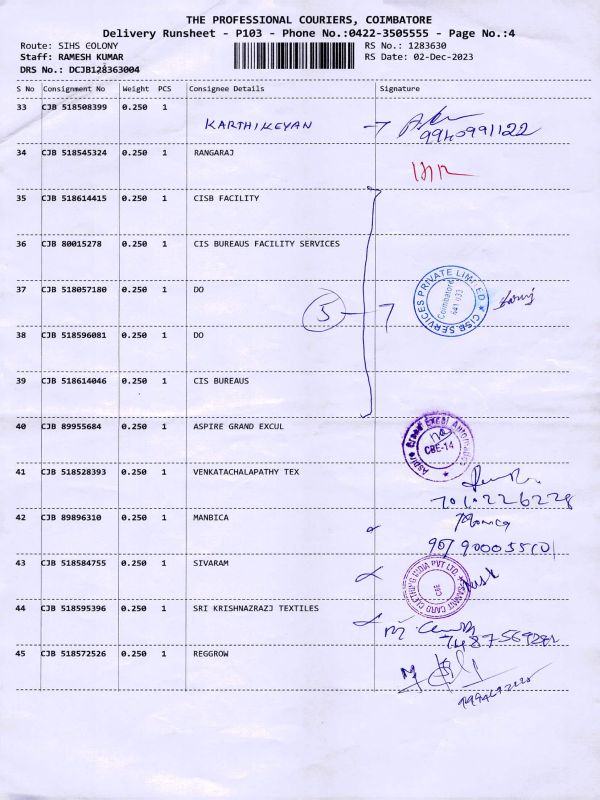 THE PROFESSIONAL COURIERS, COIMBATORE
Delivery Runsheet - P103 - Phone No.:0422-3505555 - Page No.:4
Route: SIHS COLONY
RS No.: 1283630
Staff: RAMESH KUMAR
RS Date: 02-Dec-2023
DRS No.: DCJB128363004
S No Consignment No Weight PCS Consignee Details Signature
33 CJB 518508399 0.250 1
KARTHIKEYAN
9940991122
34 CJB 518545324 0.250 1 RANGARAJ
35 CJB 518614415 0.250 1 CISB FACILITY
36 CJB 80015278 0.250 1 CIS BUREAUS FACILITY SERVICES
37 CJB 518057180 0.250 1 DO
5
CISB SERVICES PRIVATE LIMITED
Coimbatore
641 033
38 CJB 518596081 0.250 1 DO
39 CJB 518614046 0.250 1 CIS BUREAUS
40 CJB 89955684 0.250 1 ASPIRE GRAND EXCUL
Aspire Grand Excel Automation
CBE-14
41 CJB 518528393 0.250 1 VENKATACHALAPATHY TEX
42 CJB 89896310 0.250 1 MANBICA
43 CJB 518584755 0.250 1 SIVARAM
CBE
44 CJB 518595396 0.250 1 SRI KRISHNAZRAZJ TEXTILES
45 CJB 518572526 0.250 1 REGGROW